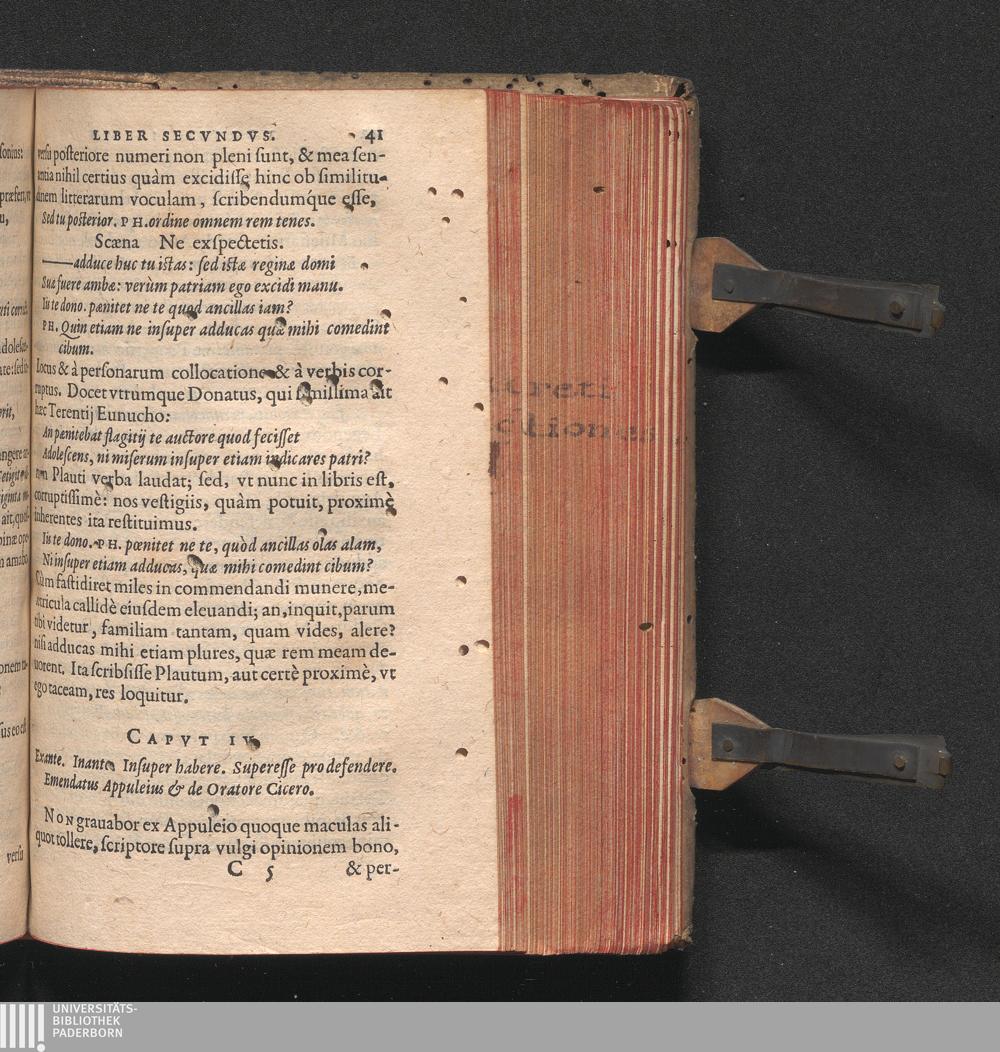 LIBER SECVNDVS. 41
versu posteriore numeri non pleni sunt, & mea sen-
tentia nihil certius quàm excidisse hinc ob similitu-
dinem litterarum voculam, scribendumq́ue esse,
Sed tu posterior. PH. ordine omnem rem tenes.
Scæna Ne exspectetis.
——adduce huc tu istas: sed istæ reginæ domi
Suæ fuere ambæ: verùm patriam ego excidi manu.
Iis te dono. pænitet ne te quod ancillas iam?
PH. Quin etiam ne insuper adducas quæ mihi comedint
cibum.
Locus & à personarum collocatione & à verbis cor-
ruptus. Docet vtrumque Donatus, qui simillima ait
hæc Terentij Eunucho:
An pœnitebat flagitij te auctore quod fecisset
Adolescens, ni miserum insuper etiam indicares patri?
Plauti verba laudat; sed, vt nunc in libris est,
corruptissimè: nos vestigiis, quàm potuit, proximè
inherentes ita restituimus.
Iis te dono. PH. pœnitet ne te, quòd ancillas olas alam,
Ni insuper etiam adducas, quæ mihi comedint cibum?
Cùm fastidiret miles in commendandi munere, me-
retricula callidè eiusdem eleuandi; an, inquit, parum
tibi videtur, familiam tantam, quam vides, alere?
nisi adducas mihi etiam plures, quæ rem meam de-
uorent. Ita scribsisse Plautum, aut certè proximè, vt
ego taceam, res loquitur.
CAPVT IV.
Exante. Inante. Insuper habere. Superesse pro defendere.
Emendatus Appuleius & de Oratore Cicero.
NON grauabor ex Appuleio quoque maculas ali-
quot tollere, scriptore supra vulgi opinionem bono,
C 5 & per-
versu
UNIVERSITÄTS-
BIBLIOTHEK
PADERBORN